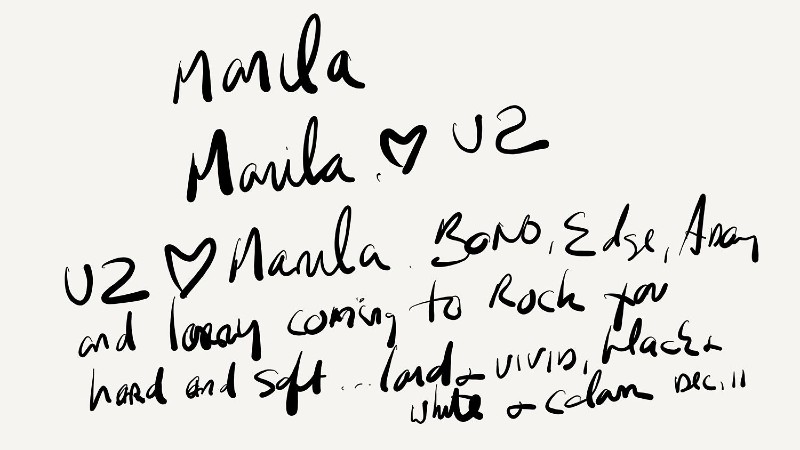 Manila
Manila ♡ U2
U2 ♡ Manila. BONO, Edge, Adam
and Larry coming to Rock you
hard and soft... loud & VIVID, black &
white & colour DEC. 11